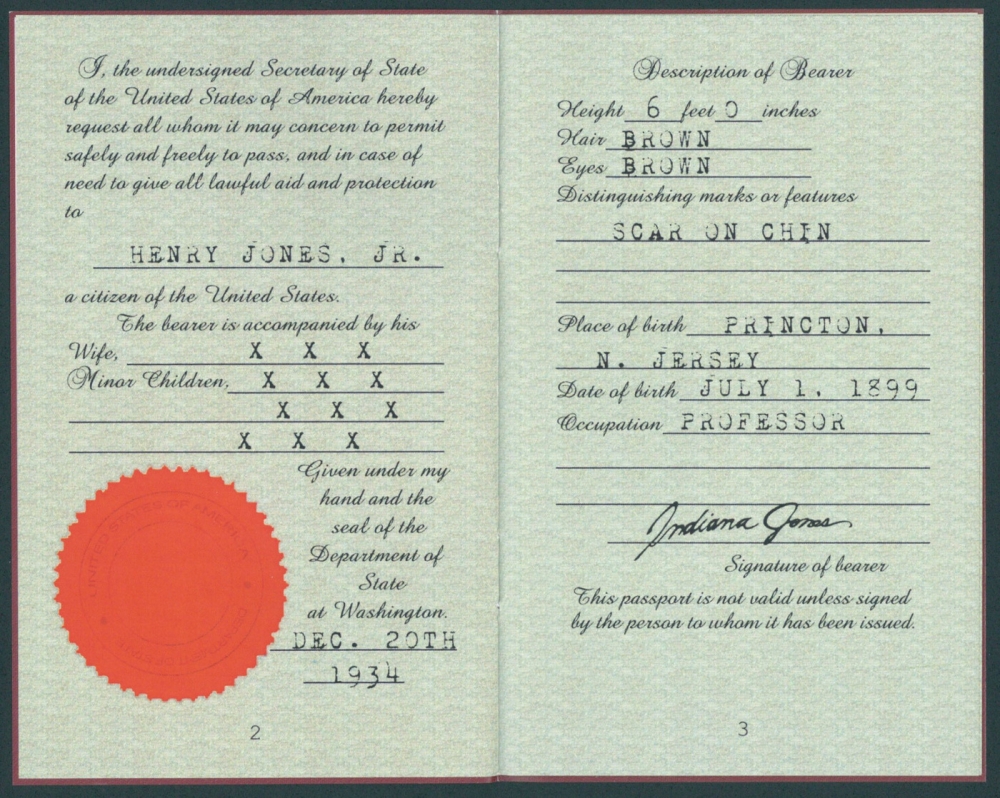 I, the undersigned Secretary of State
of the United States of America hereby
request all whom it may concern to permit
safely and freely to pass, and in case of
need to give all lawful aid and protection
to
HENRY JONES, JR.
a citizen of the United States.
The bearer is accompanied by his
Wife, X X X
Minor Children, X X X
X X X
X X X
Given under my
hand and the
seal of the
Department of
State
at Washington.
DEC. 20TH
1934
UNITED STATES OF AMERICA
DEPARTMENT OF STATE
2
Description of Bearer
Height 6 feet 0 inches
Hair BROWN
Eyes BROWN
Distinguishing marks or features
SCAR ON CHIN
Place of birth PRINCTON,
N. JERSEY
Date of birth JULY 1, 1899
Occupation PROFESSOR
Indiana Jones
Signature of bearer
This passport is not valid unless signed
by the person to whom it has been issued.
3